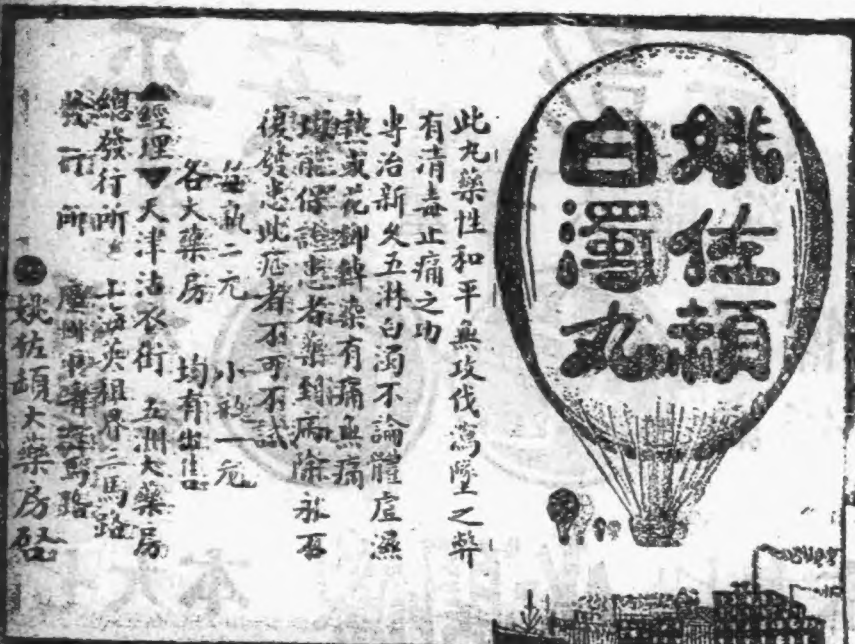 姚佐頓
白濁丸
此丸藥性和平無攻伐瀉墜之弊
有清毒止痛之功
專治新久五淋白濁不論體虛濕
熱或花柳染有痛無痛
能保證患者藥到病除永不
復發患此症者不可不試
每瓶二元 小瓶一元
各大藥房 均有出售
▲經理▼天津沽衣街 五洲大藥房
總發行所 上海英租界二馬路
發行所 馬路
姚佐頓大藥房啓